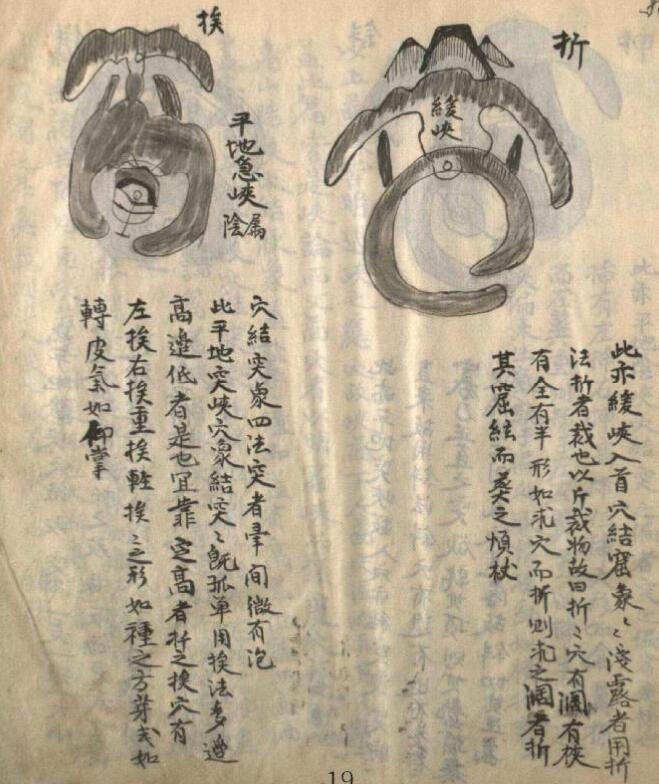 折
緩峽
此亦緩峽入首穴結窟象〻淺露者用折
法折者裁也以斤裁物故曰折〻穴有濶有狹
有全有半形如求穴而折則求之濶者折
其窟絃而葬之順杖
挨
平地急峽
属陰
穴結突象四法突者暈间微有泡
此平地突峽穴象結突〻既孤单用挨法多邊
高邊低者是也宜靠定高者扦之挨穴有
左挨右挨重挨軽挨〻之形如種之方芽或如
轉皮氣如仰掌
19